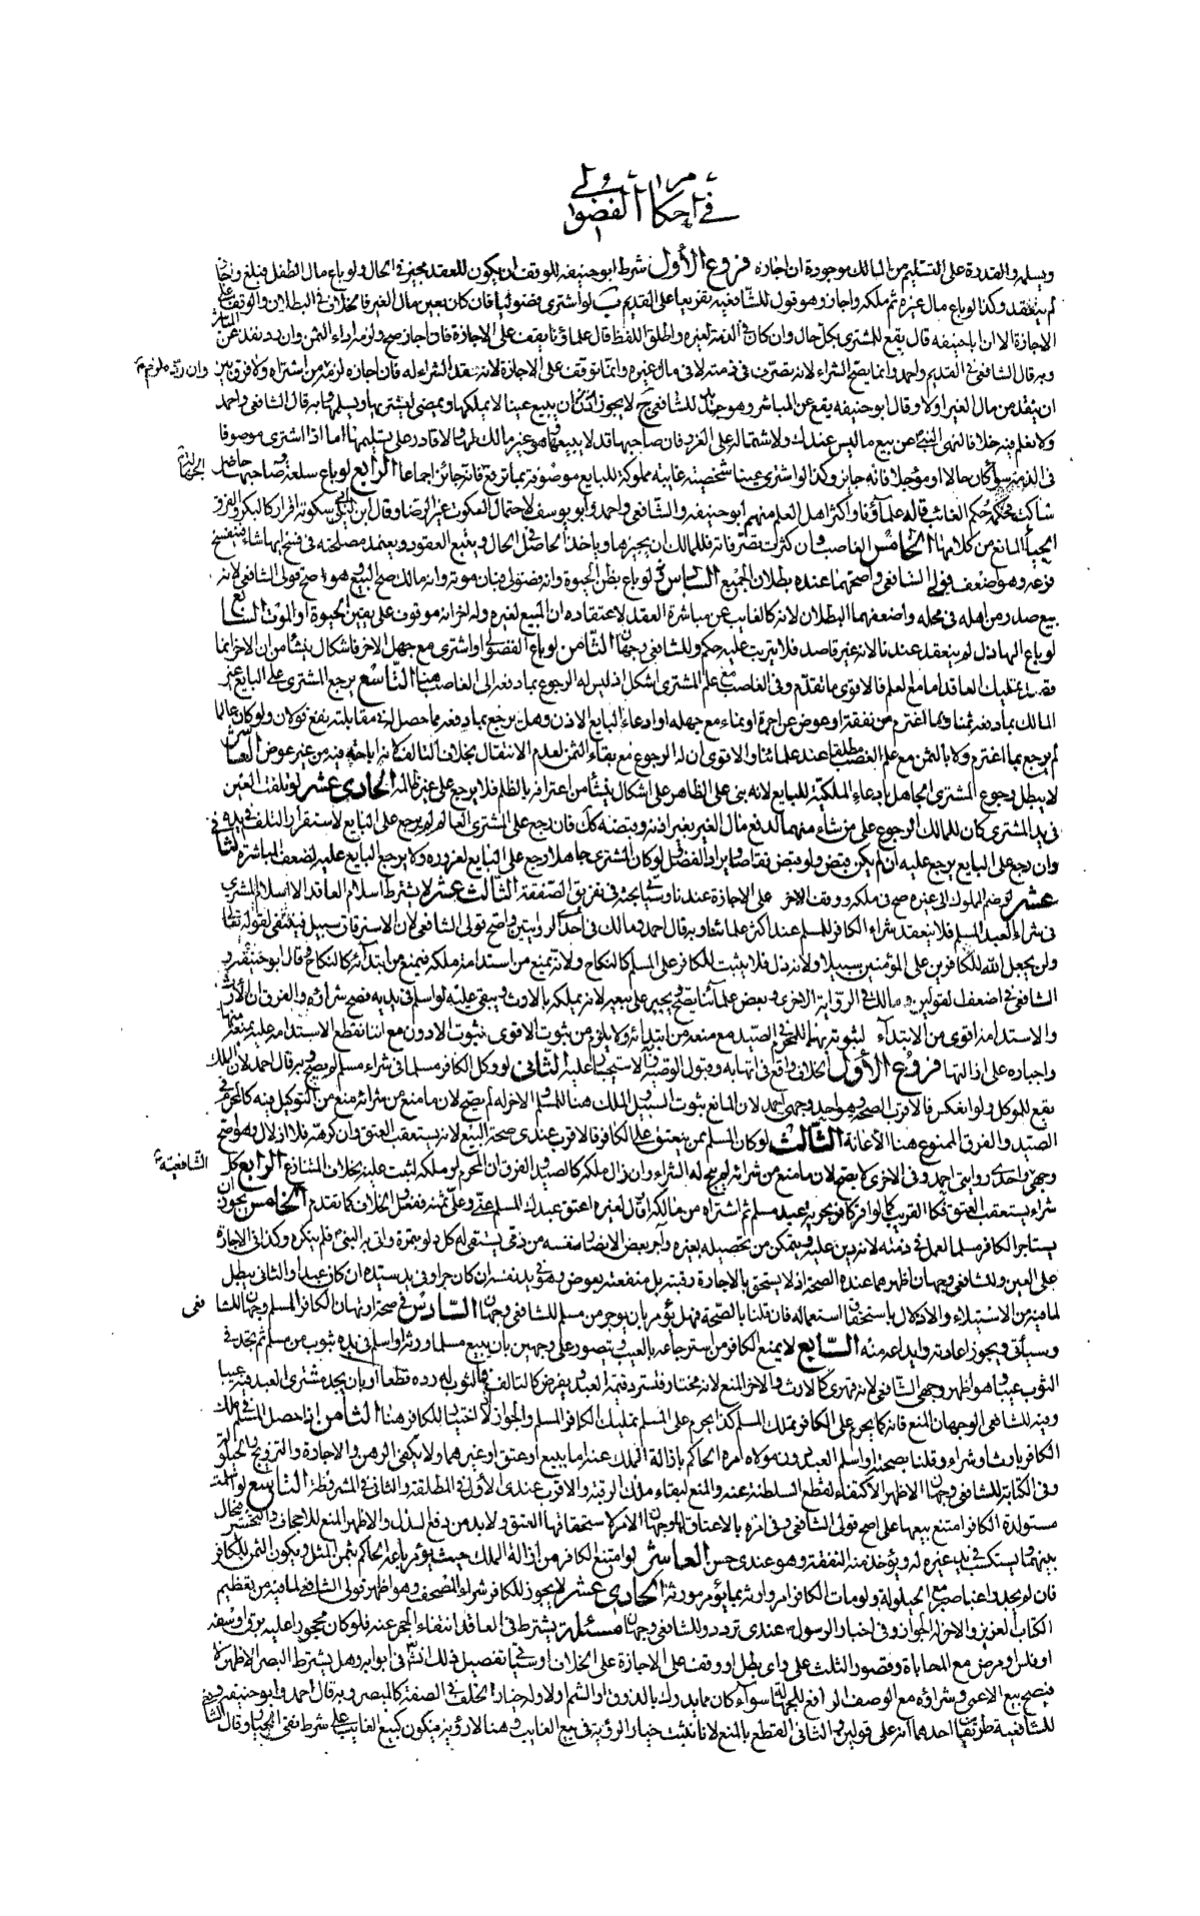 في أحكام الفضولي
ويسلمه والقدرة على التسليم من المالك موجودة ان اجازه فروع الأول شرط ابو حنيفه للوقف ان يكون للعقد مجيز في الحال ولو باع مال الطفل فبلغ واجاز
لم ينعقد وكذا لو باع مال غيره ثم ملكه واجاز وهو قول للشافعيه تفريعا على القديم ب لو اشترى فضوليا فان كان بعين مال الغير فالخلاف في البطلان والوقف على
الاجازة الا ان ابا حنيفه قال يقع للمشترى بكل حال وان كان في الذمة لغيره واطلق اللفظ قال علماؤنا يقف على الاجازة فان اجاز صح ولزمه اداء الثمن وان رد نفذ عن المباشر
وبه قال الشافعي في القديم واحمد وانما يصح الشراء لانه تصرف في ذمته لا في مال غيره وانما توقف على الاجازة لانه عقد الشراء له فان اجازه لزمه من اشتراه ولا فرق بين
وان رده لزم من
ان ينقد من مال الغير اولا وقال ابو حنيفه يقع عن المباشر وهو جديد للشافعي ج لا يجوز ان يبيع عينا لا يملكها ويمضى ليشتريها ويسلمها وبه قال الشافعي واحمد
ولا نعلم فيه خلافا لنهى النبي عن بيع ما ليس عندك ولاشتماله على الغرر فان صاحبها قد لا يبيعها وهو غير مالك لها ولا قادر على تسليمها اما اذا اشترى موصوفا
في الذمة سواء كان حالا او مؤجلا فانه جايز وكذا لو اشترى عينا شخصية غايبة مملوكة للبايع موصوفة بما ترفع فانه جائز اجماعا الرابع لو باع سلعة وصاحبها حاضر
ساكت فحكمه حكم الغائب قاله علماؤنا واكثر اهل العلم منهم ابو حنيفه والشافعي واحمد وابو يوسف لاحتمال السكوت غير الرضا وقال ابن ابي ليلى سكوته اقرار كالبكر والفرق
الحياء المانع من كلامها الخامس الغاصب وان كثرت تصرفاته فللمالك ان يجيزها وياخذ الحاصل في الحال ويتبع العقود ويعتمد مصلحته في فسخ ايها شاء فينفسخ
فرعه وهو ضعف قولي الشافعي واصحهما عنده بطلان الجميع السادس لو باع بظن الحيوة وانه فضولي فبان موته وانه مالك صح البيع وهو اصح قولى الشافعي لانه
بيع صدر من اهله في محله واضعفهما البطلان لانه كالغايب عن مباشرة العقد لاعتقاده ان المبيع لغيره وله اخر انه موقوف على يقين الحيوة او الموت السابع
لو باع الهازل لم ينعقد عندنا لانه غير قاصد فلا يترتب عليه حكم وللشافعي وجهان الثامن لو باع الفضولي او اشترى مع جهل الاخر فاشكال ينشأ من ان الاخر انما
قصد تمليك العاقد اما مع العلم فالاقوى ما تقدم وفي الغاصب مع علم المشترى اشكل اذ ليس له الرجوع بما دفعه الى الغاصب هنا التاسع يرجع المشترى على البايع غير
المالك بما دفعه ثمنا وبما اغترم من نفقة او عوض عن اجرة او نماء مع جهله او ادعاء البايع الاذن وهل يرجع بما دفعه مما حصل له في مقابلته نفع قولان ولو كان عالما
لم يرجع بما اغترم ولا بالثمن مع علم الغصب مطلقا عند علمائنا والاقوى ان له الرجوع مع بقاء الثمن لعدم الانتقال بخلاف التالف لانه اباحه فيه من غير عوض العاشر
لا يبطل رجوع المشترى الجاهل بادعاء الملكية للبايع لانه بنى على الظاهر على اشكال ينشأ من اعترافه بالظلم فلا يرجع على غير ظالمه الحادي عشر لو تلفت العين
في يد المشترى كان للمالك الرجوع على من شاء منهما لدفع مال الغير بغير اذنه وقبضه كك فان رجع على المشترى العالم لم يرجع على البايع لاستقرار التلف في يده
وان رجع على البايع يرجع عليه ان لم يكن قبض ولو قبض تقاصا ويراد الفضل ولو كان المشترى جاهلا رجع على البايع لغروره ولا يرجع البايع عليه لضعف المباشرة الثاني
عشر لو ضم المملوك الى غيره صح في ملكه ووقف الاخر على الاجازة عندنا وسيأتي البحث في تفريق الصفقة الثالث عشر لا يشترط اسلام العاقد الا اسلام المشترى
في شراء العبد المسلم فلا ينعقد شراء الكافر للمسلم عند اكثر علمائنا وبه قال احمد ومالك في احدى الروايتين واصح قولى الشافعي لان الاسترقاق سبيل فينتفى لقوله تعالى
ولن يجعل الله للكافرين على المؤمنين سبيلا ولانه ذل فلا يثبت للكافر على المسلم كالنكاح ولانه يمنع من استدامة ملكه فيمنع من ابتدائه كالنكاح وقال ابو حنيفه و
الشافعي في اضعف القولين ومالك في الرواية الاخرى وبعض علمائنا يصح ويجبر على بيعه لانه يملكه بالارث ويبقى عليه لو اسلم في يديه فصح شراؤه والفرق ان الارث
والاستدامة اقوى من الابتداء لثبوته بهما للمحرم في الصيد مع منعه من ابتدائه ولا يلزم من ثبوت الاقوى ثبوت الادون مع اننا نقطع الاستدامة عليه بمنعه منها
واجباره على ازالتها فروع الأول الخلاف واقع في اتهابه وقبول الوصية والاستيجاب عليه الثاني لو وكل الكافر مسلما في شراء مسلم لم يصح وبه قال احمد لان الملك
يقع للموكل ولو انعكس فالاقرب الصحة وهو احد وجهى احمد لان المانع ثبوت السبيل والملك هنا للمسلم والاخر له لم يصح لان ما منع من شرائه منع من التوكيل فيه كالمحرم في
الصيد والفرق الممنوع هنا الاعانة الثالث لو كان المسلم ممن ينعتق على الكافر فالاقرب عندى صحة البيع لانه يستعقب العتق وان كرهه فلا اذلال وهو اصح
وجهي واحدى روايتى احمد وفى الاخرى لا يصح لان ما منع من شرائه لم يبح له الشراء وان زال ملكه كالصيد والفرق ان المحرم لو ملكه لثبت عليه بخلاف المتنازع الرابع كل
الشافعيه
شراء يستعقب العتق فكالقريب كما لو اقر كافر بحرية عبد مسلم ثم اشتراه من مالكه او قال لغيره اعتق عبدك المسلم عنى وعلى ثمنه ففعل والخلاف كما تقدم الخامس يجوز ان
يستاجر الكافر مسلما لعمل في ذمته لانه دين عليه ويتمكن من تحصيله بغيره واجر بعض الانصار نفسه من ذمي يستقي له كل دلو بتمرة واتى به النبي فلم ينكره وكذا في الاجارة
على العين وللشافعي وجهان اظهرهما عنده الصحة اذ لا يستحق بالاجارة رقبته بل منفعته بعوض وهو في يد نفسه ان كان حرا وفي يد سيده ان كان عبدا والثاني يبطل
لما فيه من الاستيلاء والاذلال باستحقاق استعماله فان قلنا بالصحة فهل يؤمر بان يوجر من مسلم للشافعي وجهان السادس في صحة ارتهان الكافر المسلم وجهان للشافعي
وسيأتى ويجوز اعارته وايداعه منه السابع لا يمنع الكافر من استرجاعه بالعيب ويتصور على وجهين بان يبيع مسلما ورثه او اسلم في يده بثوب من مسلم ثم يجد في
الثوب عيبا وهو اظهر وجهى الشافعي لانه قهرى كالارث والاخر المنع لانه مختار فليسترد قيمة العبد ويفرض كالتالف والثوب له رده قطعا او بان يجد مشترى العبد فيه عيبا
وفيه للشافعي الوجهان المنع فانه كما يحرم على الكافر تملك المسلم كذا يحرم على المسلم تمليك الكافر المسلم والجواز لان اختيار للكافر هنا الثامن اذا حصل المسلم في ملك
الكافر بارث او شراء وقلنا بصحته او اسلم العبد دون مولاه امره الحاكم بازالة الملك عنه اما ببيع او عتق او غيرهما ولا يكفي الرهن والاجارة والتزويج والحيلولة
وفي الكتابة للشافعي وجهان الاظهر الاكتفاء لقطع السلطنة عنه والمنع لبقاء ملك الرقبة والاقرب عندى الاول في المطلقة والثاني في المشروطة التاسع لو اسلمت
مستولدة الكافر امتنع بيعها على اصح قولى الشافعي وفي امره بالاعتاق وجهان الامر لاستحقاقها العتق ولا بد من دفع الذل والاظهر المنع للاجحاف والتخسير فيحال
بينهما ويستكسب في يد غيره له ويؤخذ منه النفقة وهو عندى حسن العاشر لو امتنع الكافر من ازالة الملك حيث يؤمر باعه الحاكم بثمن المثل ويكون الثمن للكافر
فان لم يجد راغبا صبر مع الحيلولة ولو مات الكافر امر وارثه بما يؤمر مورثه الحادي عشر لا يجوز للكافر شراء المصحف وهو اظهر قولى الشافعي لما فيه من تعظيم
الكتاب العزيز والاخر له الجواز وفى اخبار الرسول عندى تردد وللشافعي وجهان مسئلة يشترط في العاقد انتفاء الحجر عنه فلو كان محجورا عليه برق او سفه
او فلس او مرض مع المحاباة وقصور الثلث على راى بطل او وقف على الاجازة على الخلاف وسيأتى تفصيل ذلك انشاء الله في ابوابه وهل يشترط البصر الاظهر لا
فيصح بيع الاعمى وشراؤه مع الوصف الرافع للجهالة سواء كان مما يدرك بالذوق او الشم او لا وله خيار الخلف في الصفة كالبصير وبه قال احمد وابو حنيفه و
للشافعية طريقان احدهما انه على قولين والثاني القطع بالمنع لانا نثبت خيار الرؤية في بيع الغايب وهنا لا رؤية فيكون كبيع الغايب على شرط نفي الخيار وقال